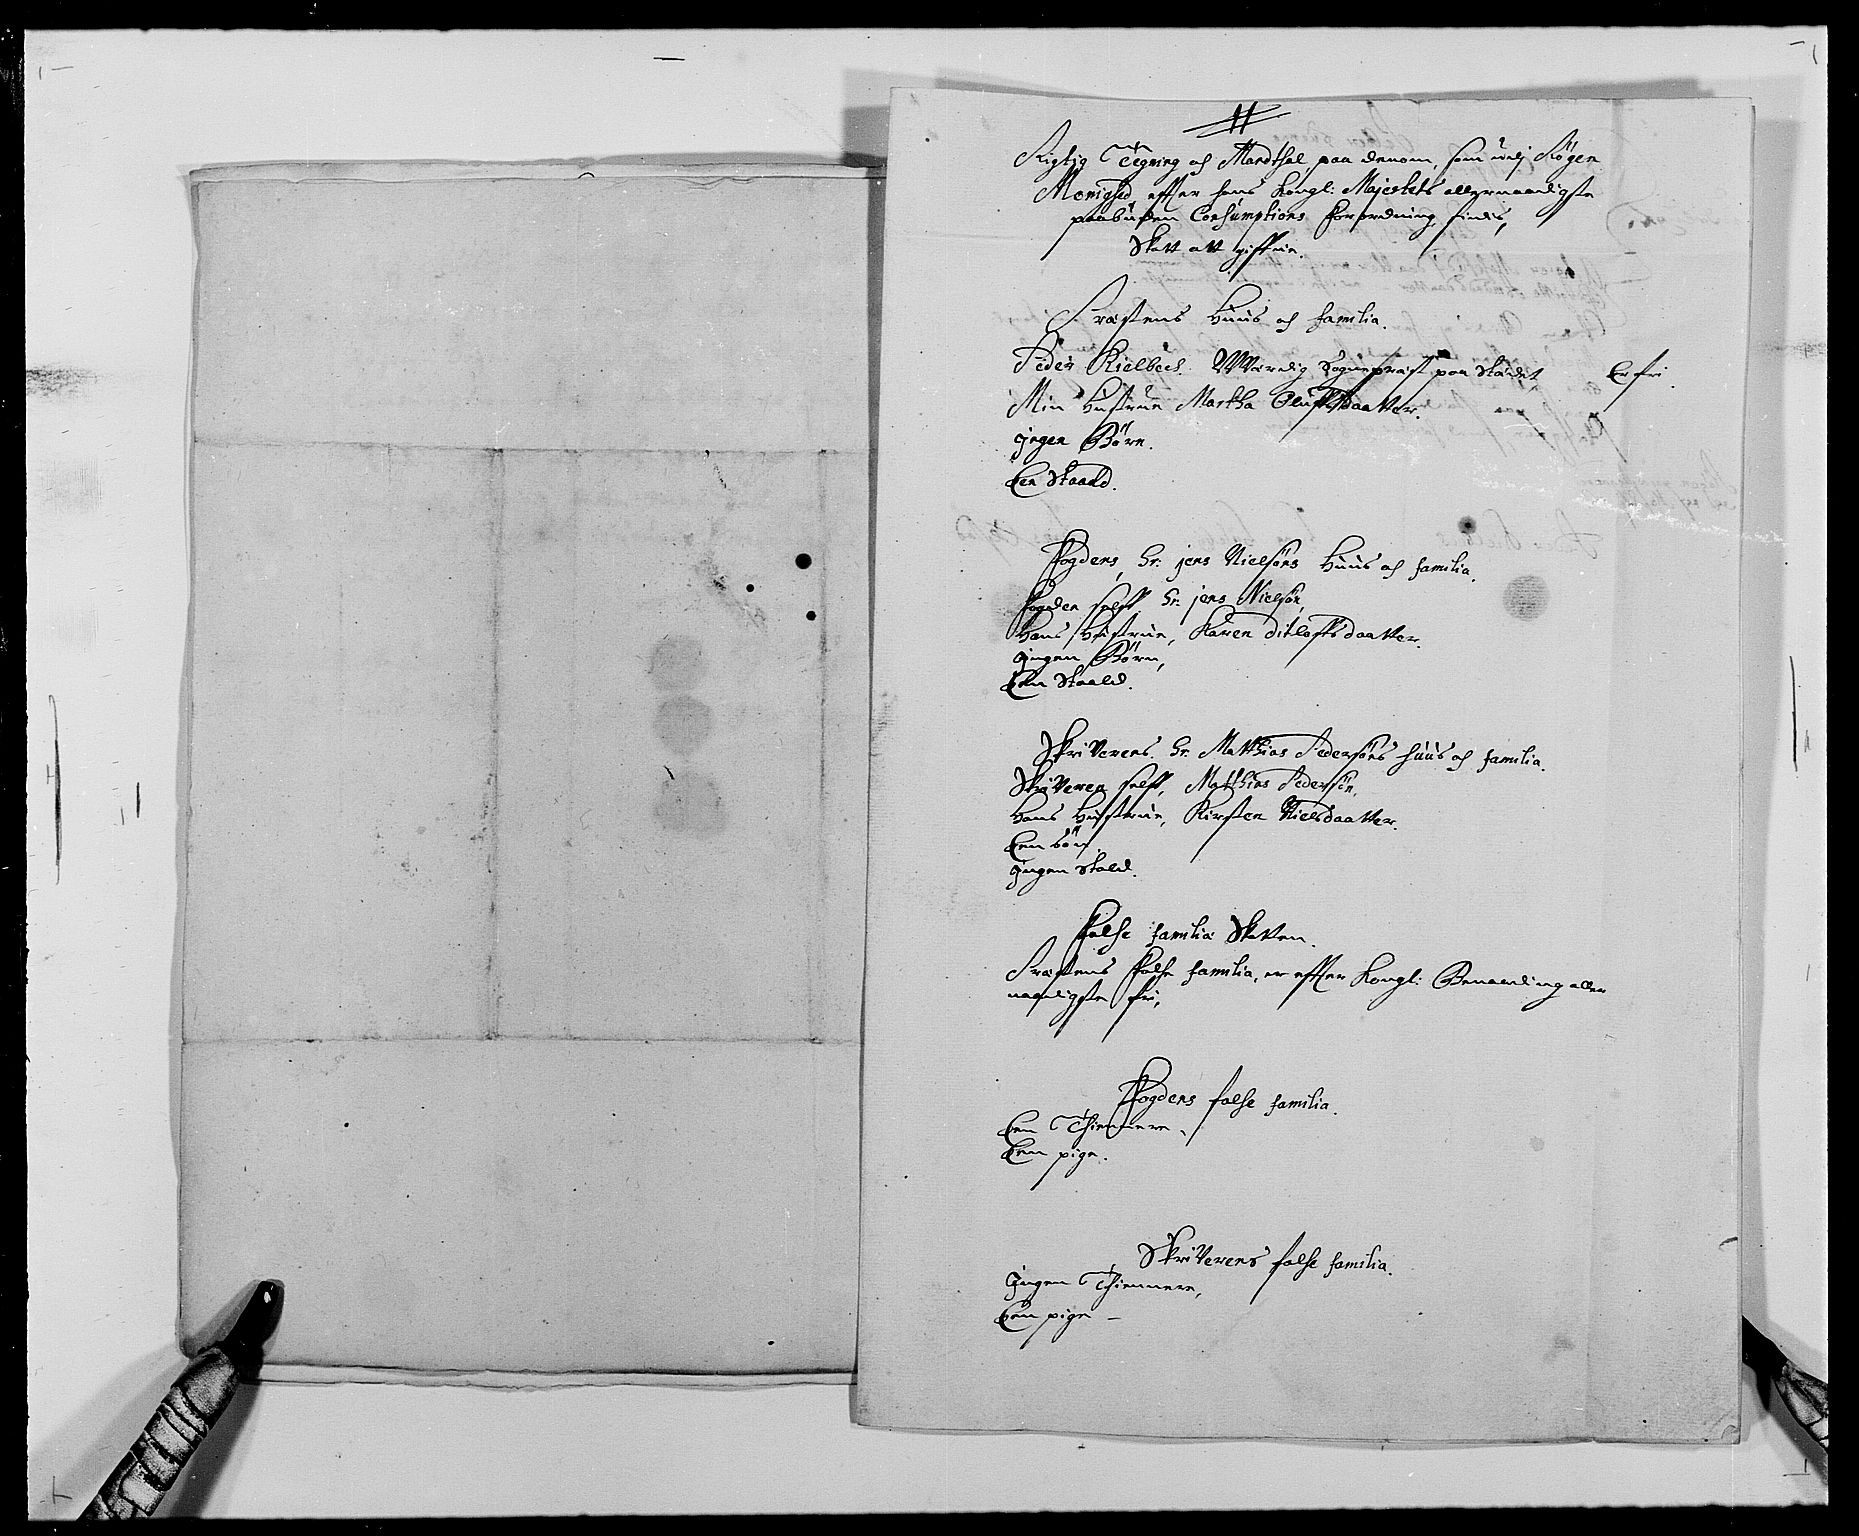 Rigtig Tegning och Mandthal paa dennem, som udj Røgen
Menighed effter hans Kongl: Majestets allernaadigste
paabudden Consumptions Forordning findis,
Skatt att giffue.
Præstens Huus och familia.
Peder Kielbech Wværdig Sogneprest paa Stædet Er fri.
Min Hustrue Martha Oluffsdaatter.
jngen Børn.
Een Staald.
Fogdens, Sr: jens Nielsøns Huus och familia.
Fogden self, Sr: jens Nielsøn,
Hans Hustrue, Karen Ditloffsdaatter.
jngen Børn,
Een Staald.
Skriverens. Sr. Matthias Pedersøns huus och familia.
Skriveren self, Matthias Pedersøn,
Hans Hustrue, Kirsten Nielsdaatter.
Een søn,
jngen Stald.
Folche familia Skatten.
Præstens Folche familia, er effter Kongl: Benaading aller
naadigste fri,
Fogdens folche familia.
Een Thiennere,
Een pige.
Skriverens folche familia.
jngen Thiennere,
Een pige –